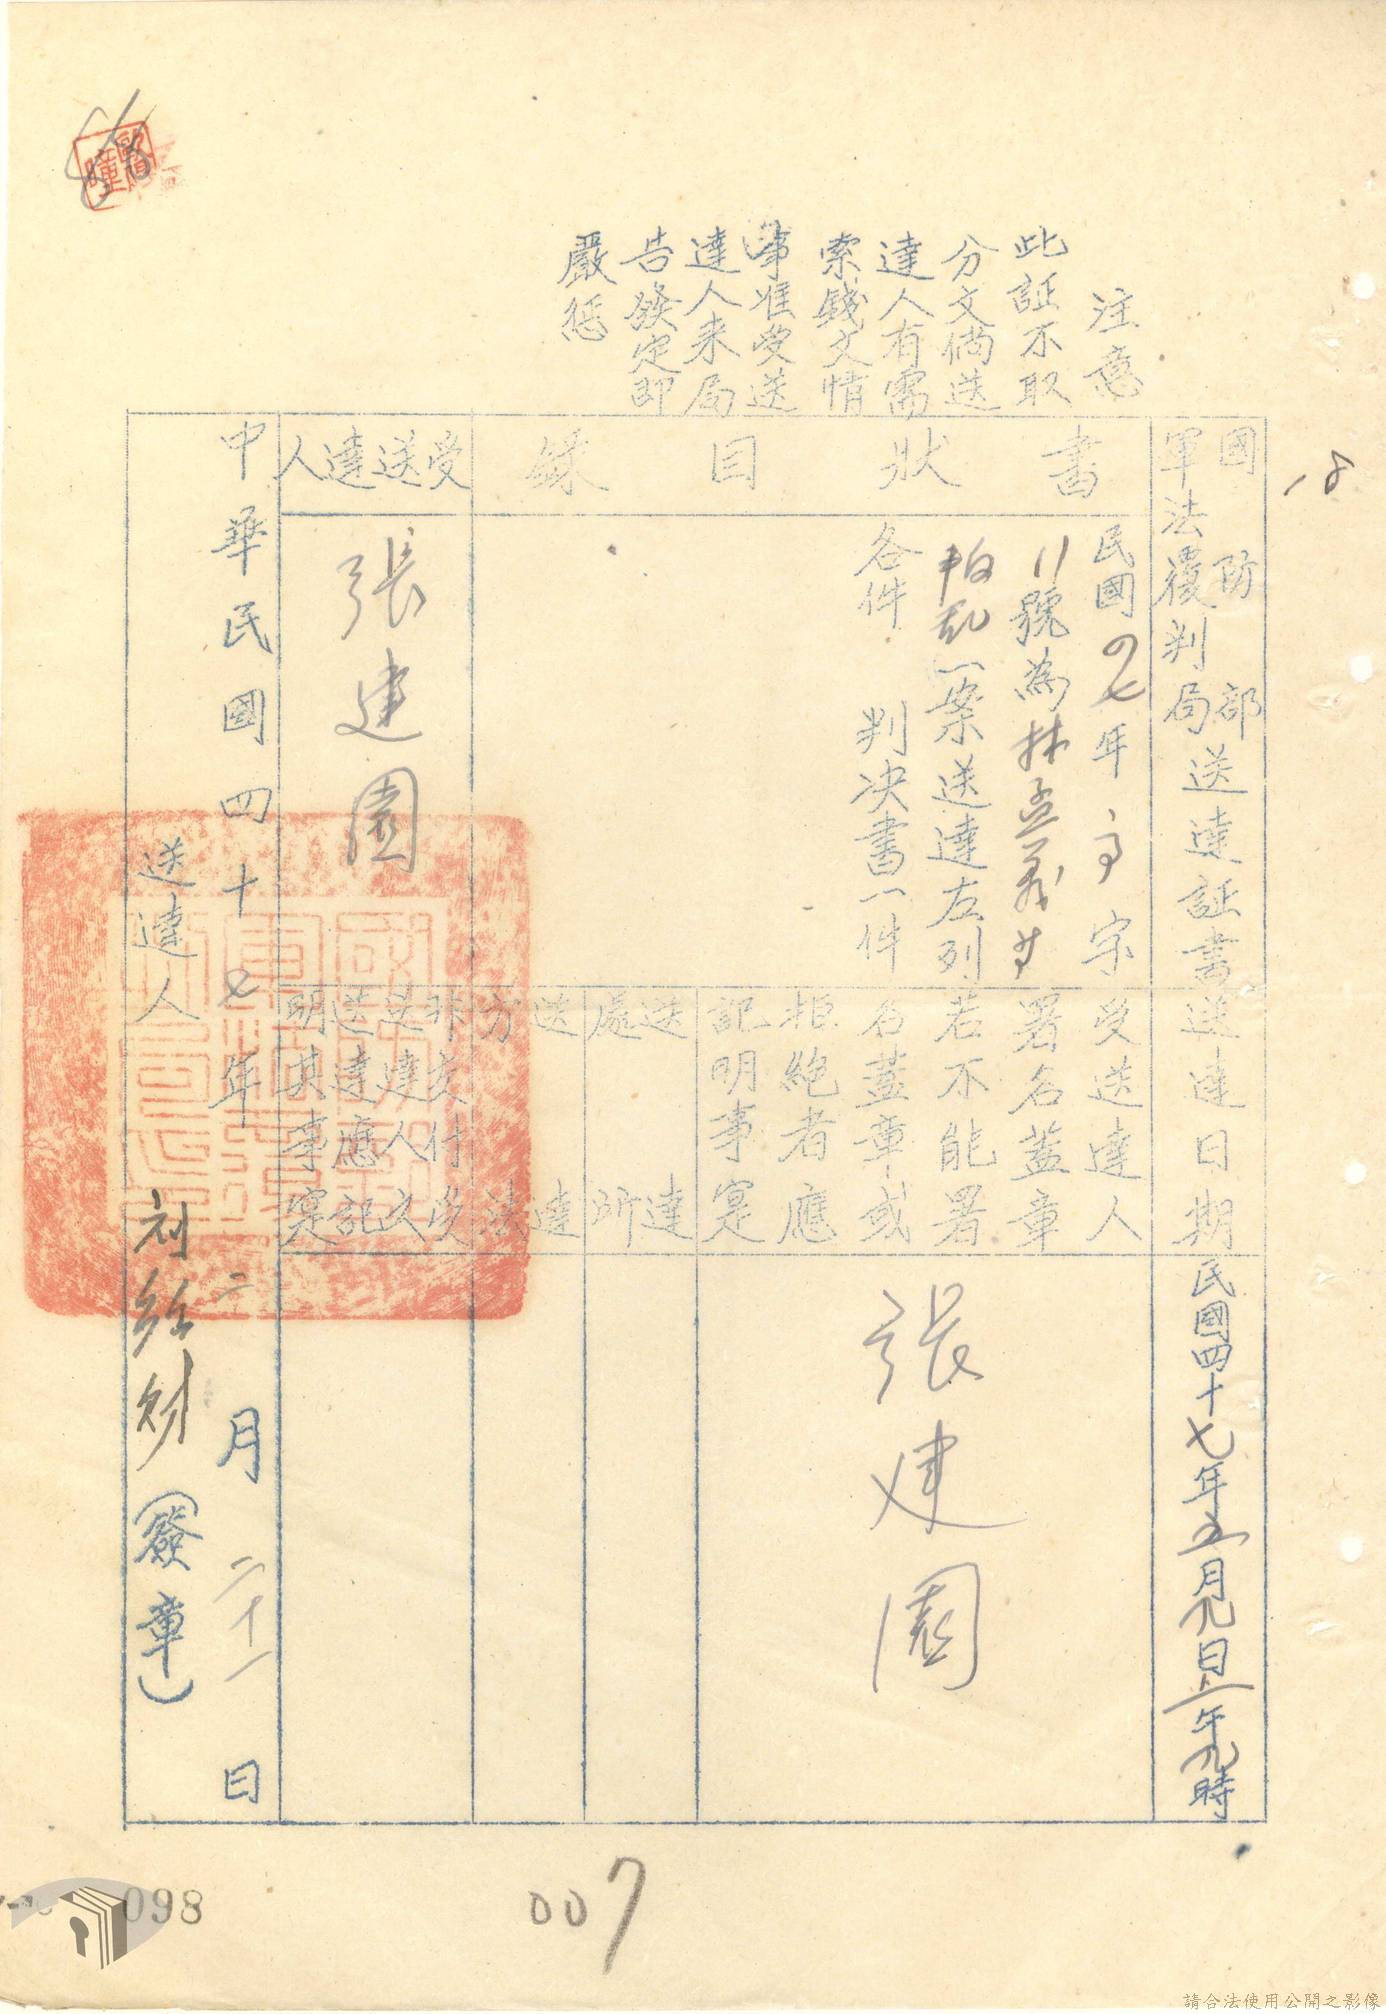 注意
此証不取
分文倘送
達人有需
索錢文情
事准受送
達人来局
告發定即
嚴懲
18
國防部
軍法覆判局送達証書
書狀目錄
民國四七年字
11號為林孟義
一案送達左列
各件
判决書一件
受送達人
張建園
送達日期
民國四十七年五月九日上午九時
受送達人
署名蓋章
若不能署
名蓋章或
拒絶者應
記明事寔
張建園
送達
處所
送達
方法
非交付受
送達人之
送達應記
明其事寔
中華民國四十七年二月二十一日
送達人
(簽章)
098
007
請合法使用公開之影像